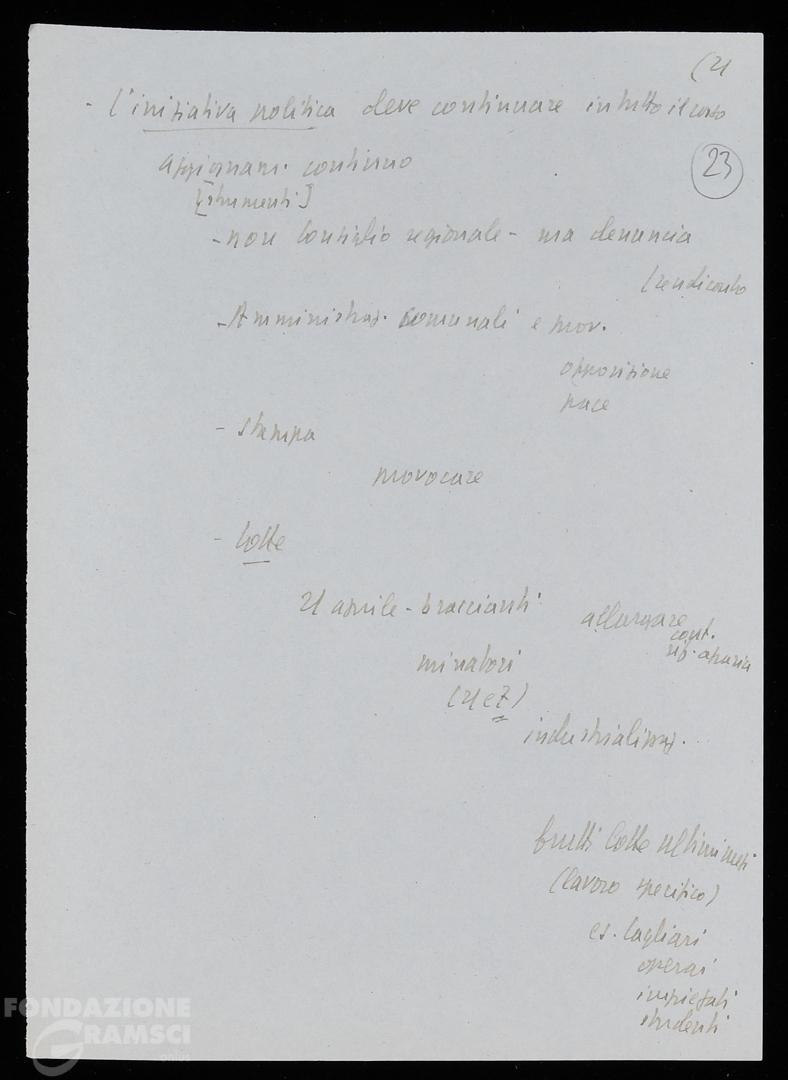 (21
- l'iniziativa politica deve continuare in tutto il corso
23
aggiornam. continuo
[strumenti]
- non Consiglio regionale - ma denuncia
(rendiconto
- Amministraz. comunali e mov.
opposizione
pace
- stampa
provocare
- lotte
21 aprile - braccianti
allargare
cont.
rif. agraria
minatori
(21 e 7)
industrializzaz.
frutti lotte ultimi mesi
(lavoro specifico)
es. Cagliari
operai
impiegati
studenti
FONDAZIONE
GRAMSCI
onlus